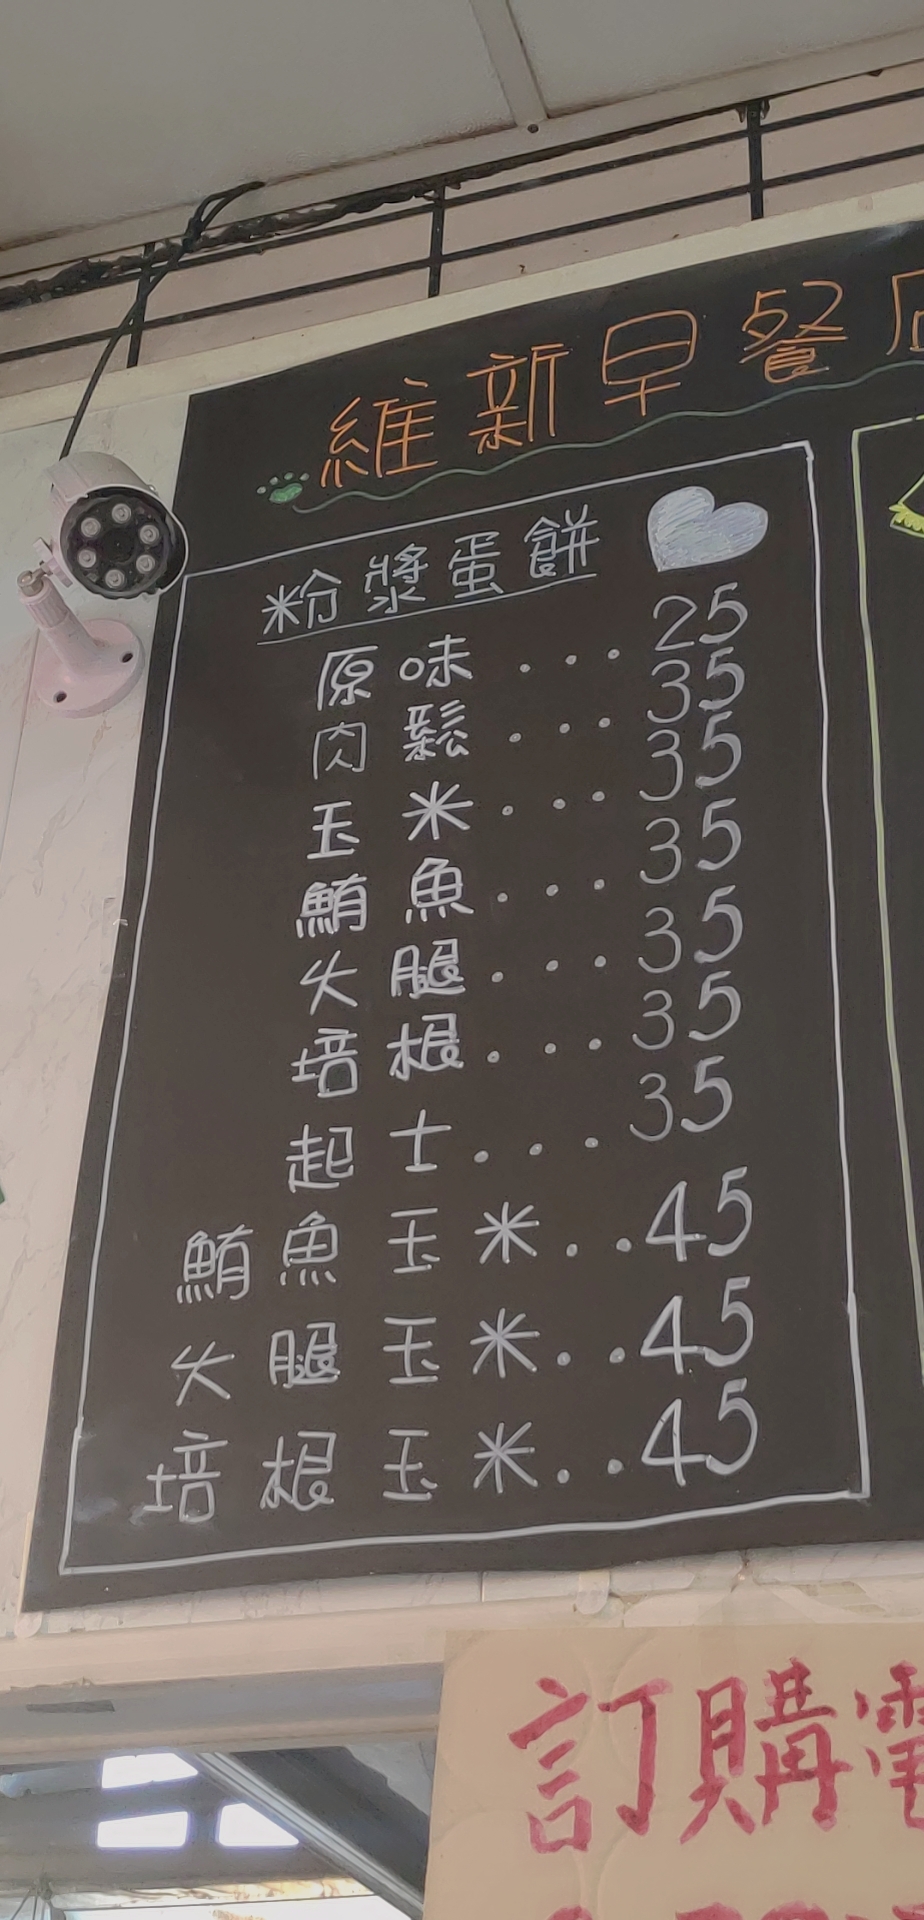 維新早餐
粉漿蛋餅
原味...25
肉鬆...35
玉米...35
鮪魚...35
火腿...35
培根...35
起士...35
鮪魚玉米..45
火腿玉米..45
培根玉米..45
訂購電